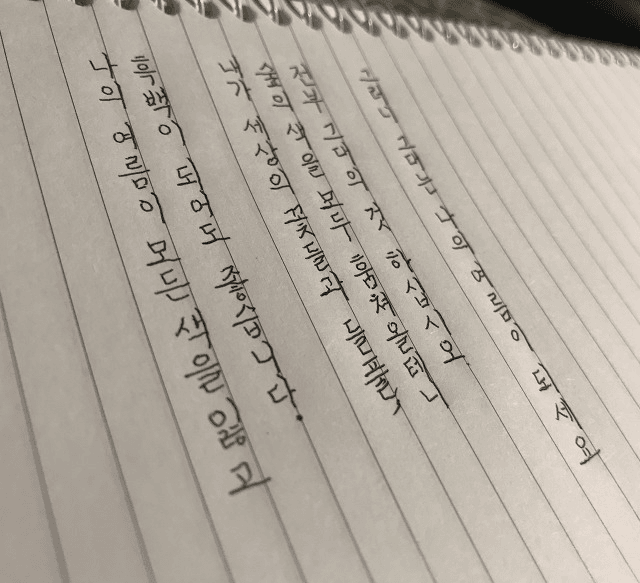 나의 여름이 모든 색을 잃고
흑백이 되어도 좋습니다.
내가 세상의 꽃들과 들풀,
숲의 색을 모두 훔쳐올테니
전부 그대의 것 하십시오
그러니 그대는 나의 여름이 되세요